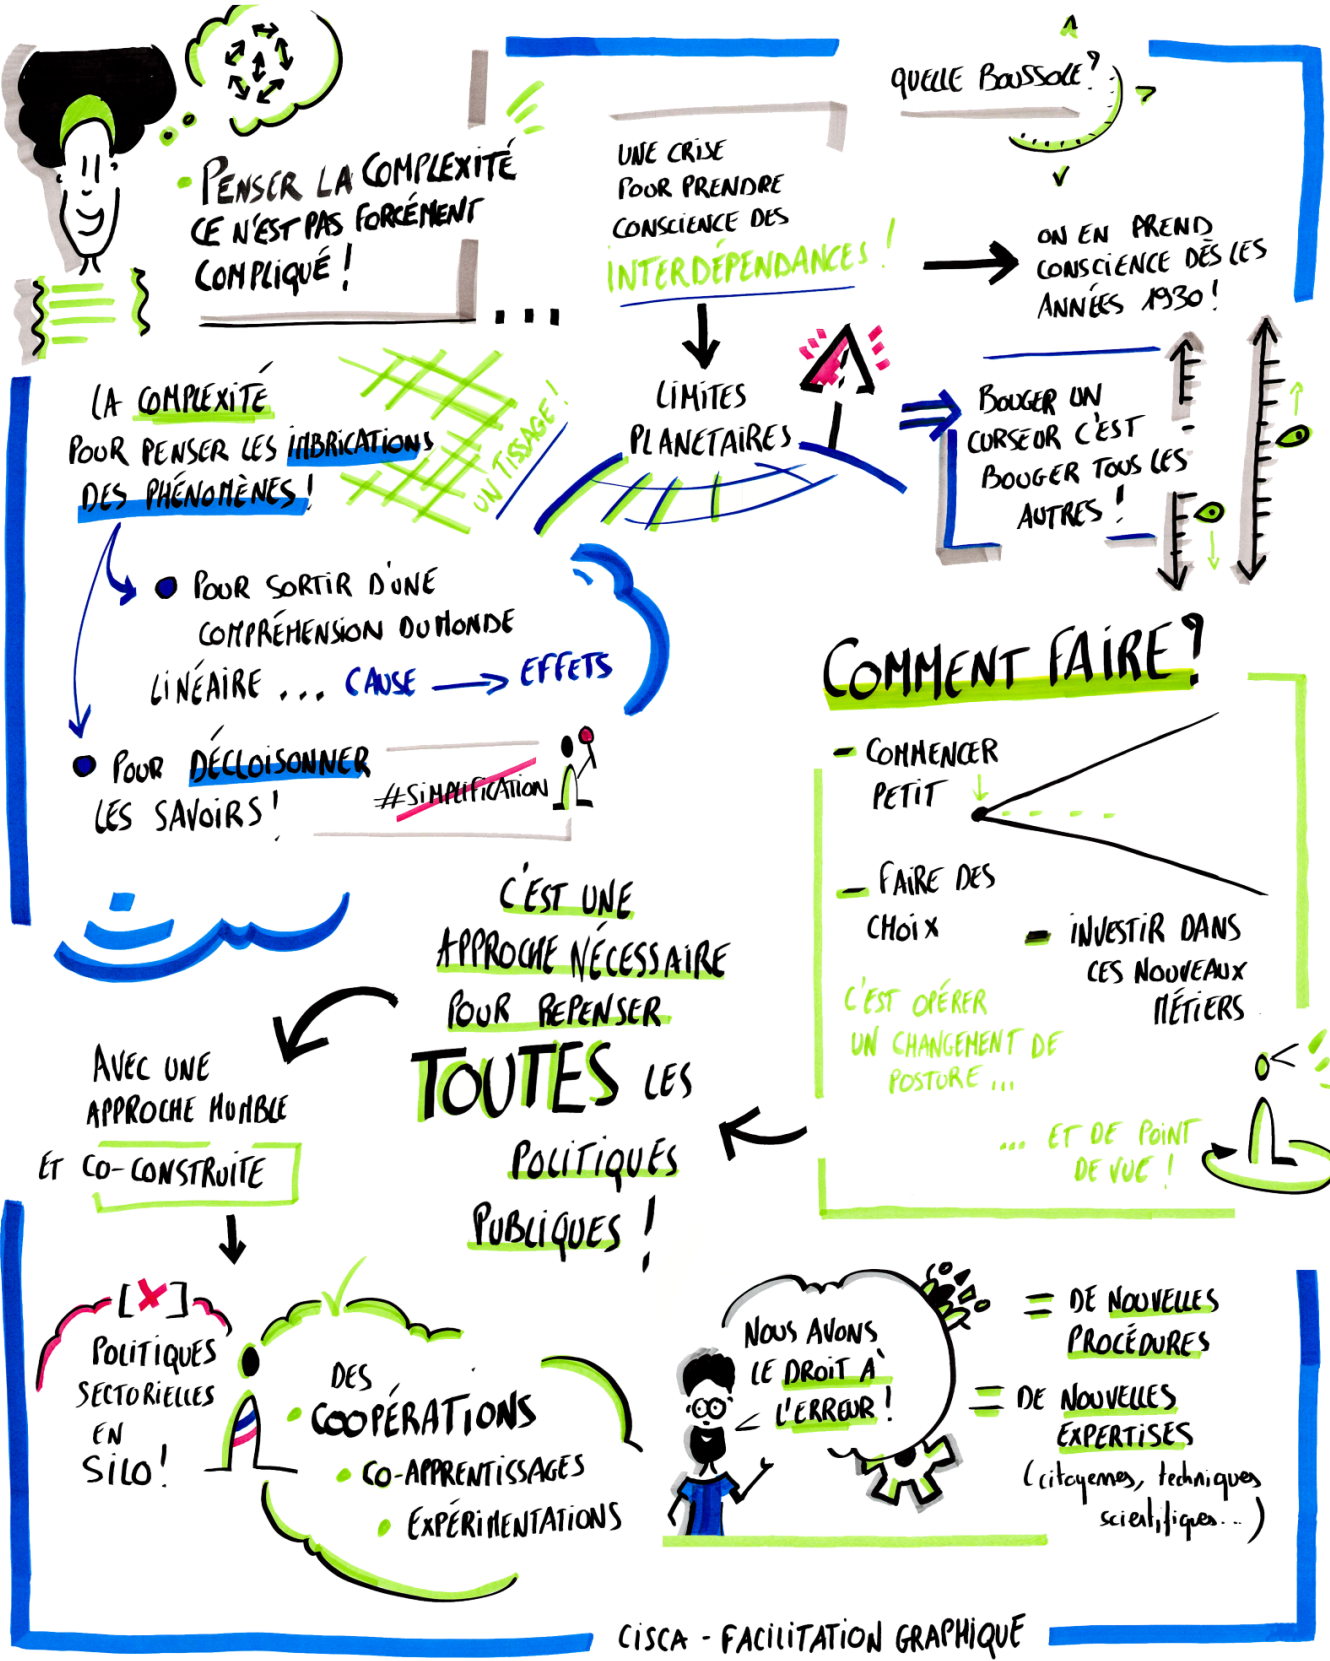 • PENSER LA COMPLEXITÉ
CE N'EST PAS FORCÉMENT
COMPLIQUÉ !
...
UNE CRISE
POUR PRENDRE
CONSCIENCE DES
INTERDÉPENDANCES !
QUELLE BOUSSOLE ?
ON EN PREND
CONSCIENCE DÈS LES
ANNÉES 1930 !
LA COMPLEXITÉ
POUR PENSER LES IMBRICATIONS
DES PHÉNOMÈNES !
UN TISSAGE !
LIMITES
PLANETAIRES
BOUGER UN
CURSEUR C'EST
BOUGER TOUS LES
AUTRES !
POUR SORTIR D'UNE
COMPRÉHENSION DU MONDE
LINÉAIRE ... CAUSE → EFFETS
POUR DÉCLOISONNER
LES SAVOIRS !
#SIMPLIFICATION
COMMENT FAIRE ?
- COMMENCER
PETIT
- FAIRE DES
CHOIX
- INVESTIR DANS
CES NOUVEAUX
MÉTIERS
C'EST OPÉRER
UN CHANGEMENT DE
POSTURE ...
... ET DE POINT
DE VUE !
C'EST UNE
APPROCHE NÉCESSAIRE
POUR REPENSER
TOUTES LES
POLITIQUES
PUBLIQUES !
AVEC UNE
APPROCHE HUMBLE
ET CO-CONSTRUITE
[X]
POLITIQUES
SECTORIELLES
EN
SILO !
DES
• COOPÉRATIONS
• CO-APPRENTISSAGES
• EXPÉRIMENTATIONS
NOUS AVONS
LE DROIT À
L'ERREUR !
= DE NOUVELLES
PROCÉDURES
= DE NOUVELLES
EXPERTISES
(citoyennes, techniques
scientifiques...)
CISCA - FACILITATION GRAPHIQUE